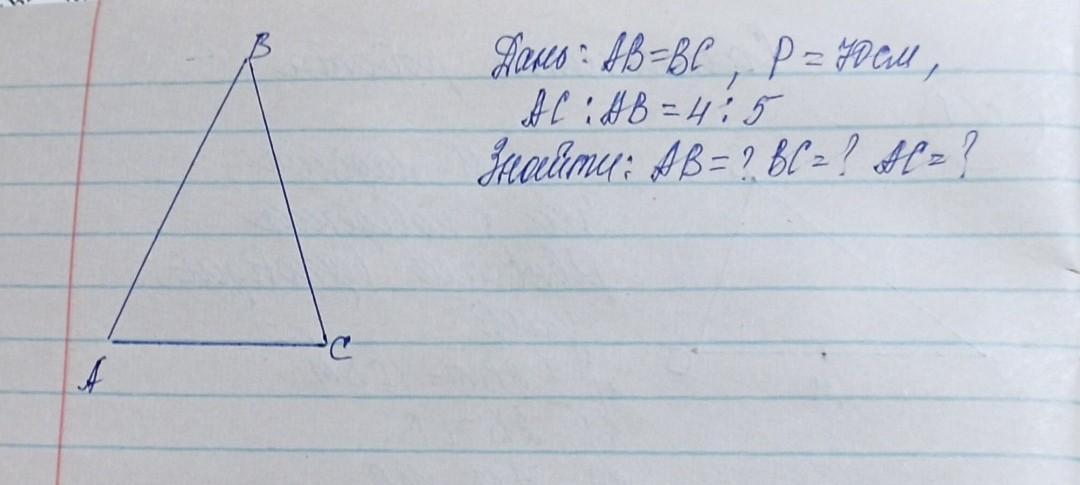 B
Дано: AB=BC, P = 70 см,
AC : AB = 4 : 5
Знайти: AB = ? BC = ? AC = ?
C
A